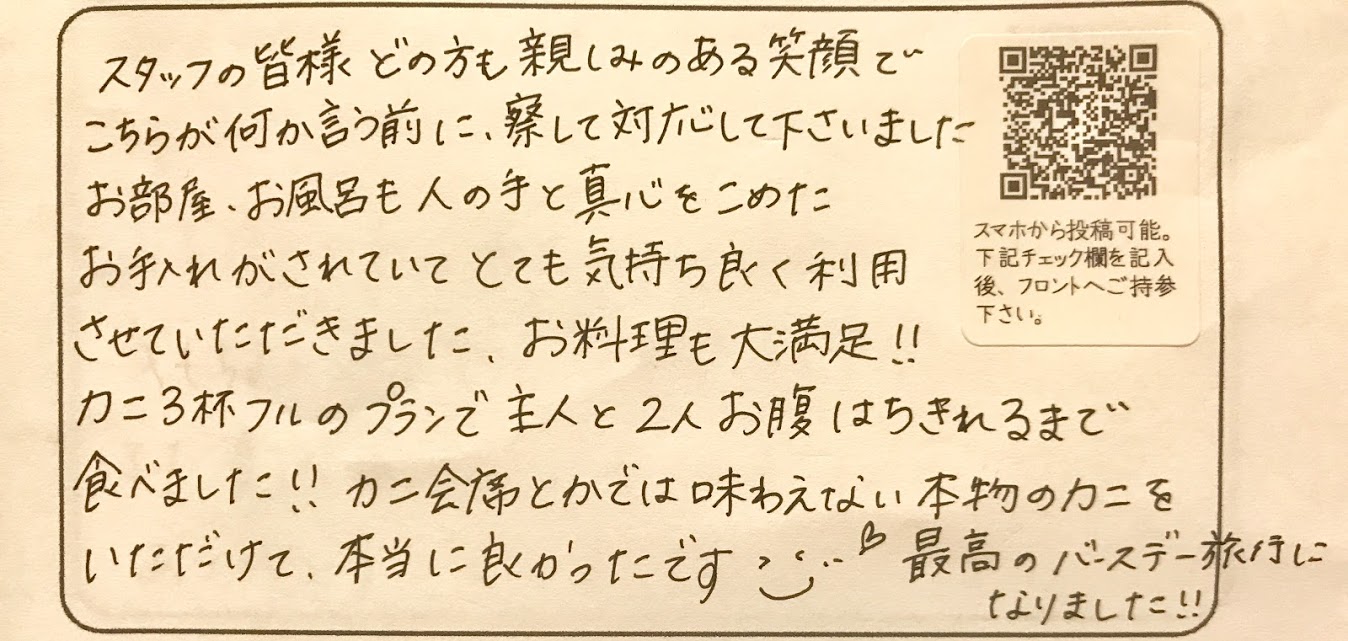 スタッフの皆様 どの方も親しみのある笑顔で
こちらが何か言う前に、察して対応して下さいました
お部屋、お風呂も人の手と真心をこめた
お手入れがされていてとても気持ち良く利用
させていただきました、お料理も大満足!!
カニ3杯フルのプランで主人と2人お腹はちきれるまで
食べました!! カニ会席とかでは味わえない本物のカニを
いただけて、本当に良かったです
最高のバースデー旅行に
なりました!!
スマホから投稿可能。
下記チェック欄を記入
後、フロントへご持参
下さい。